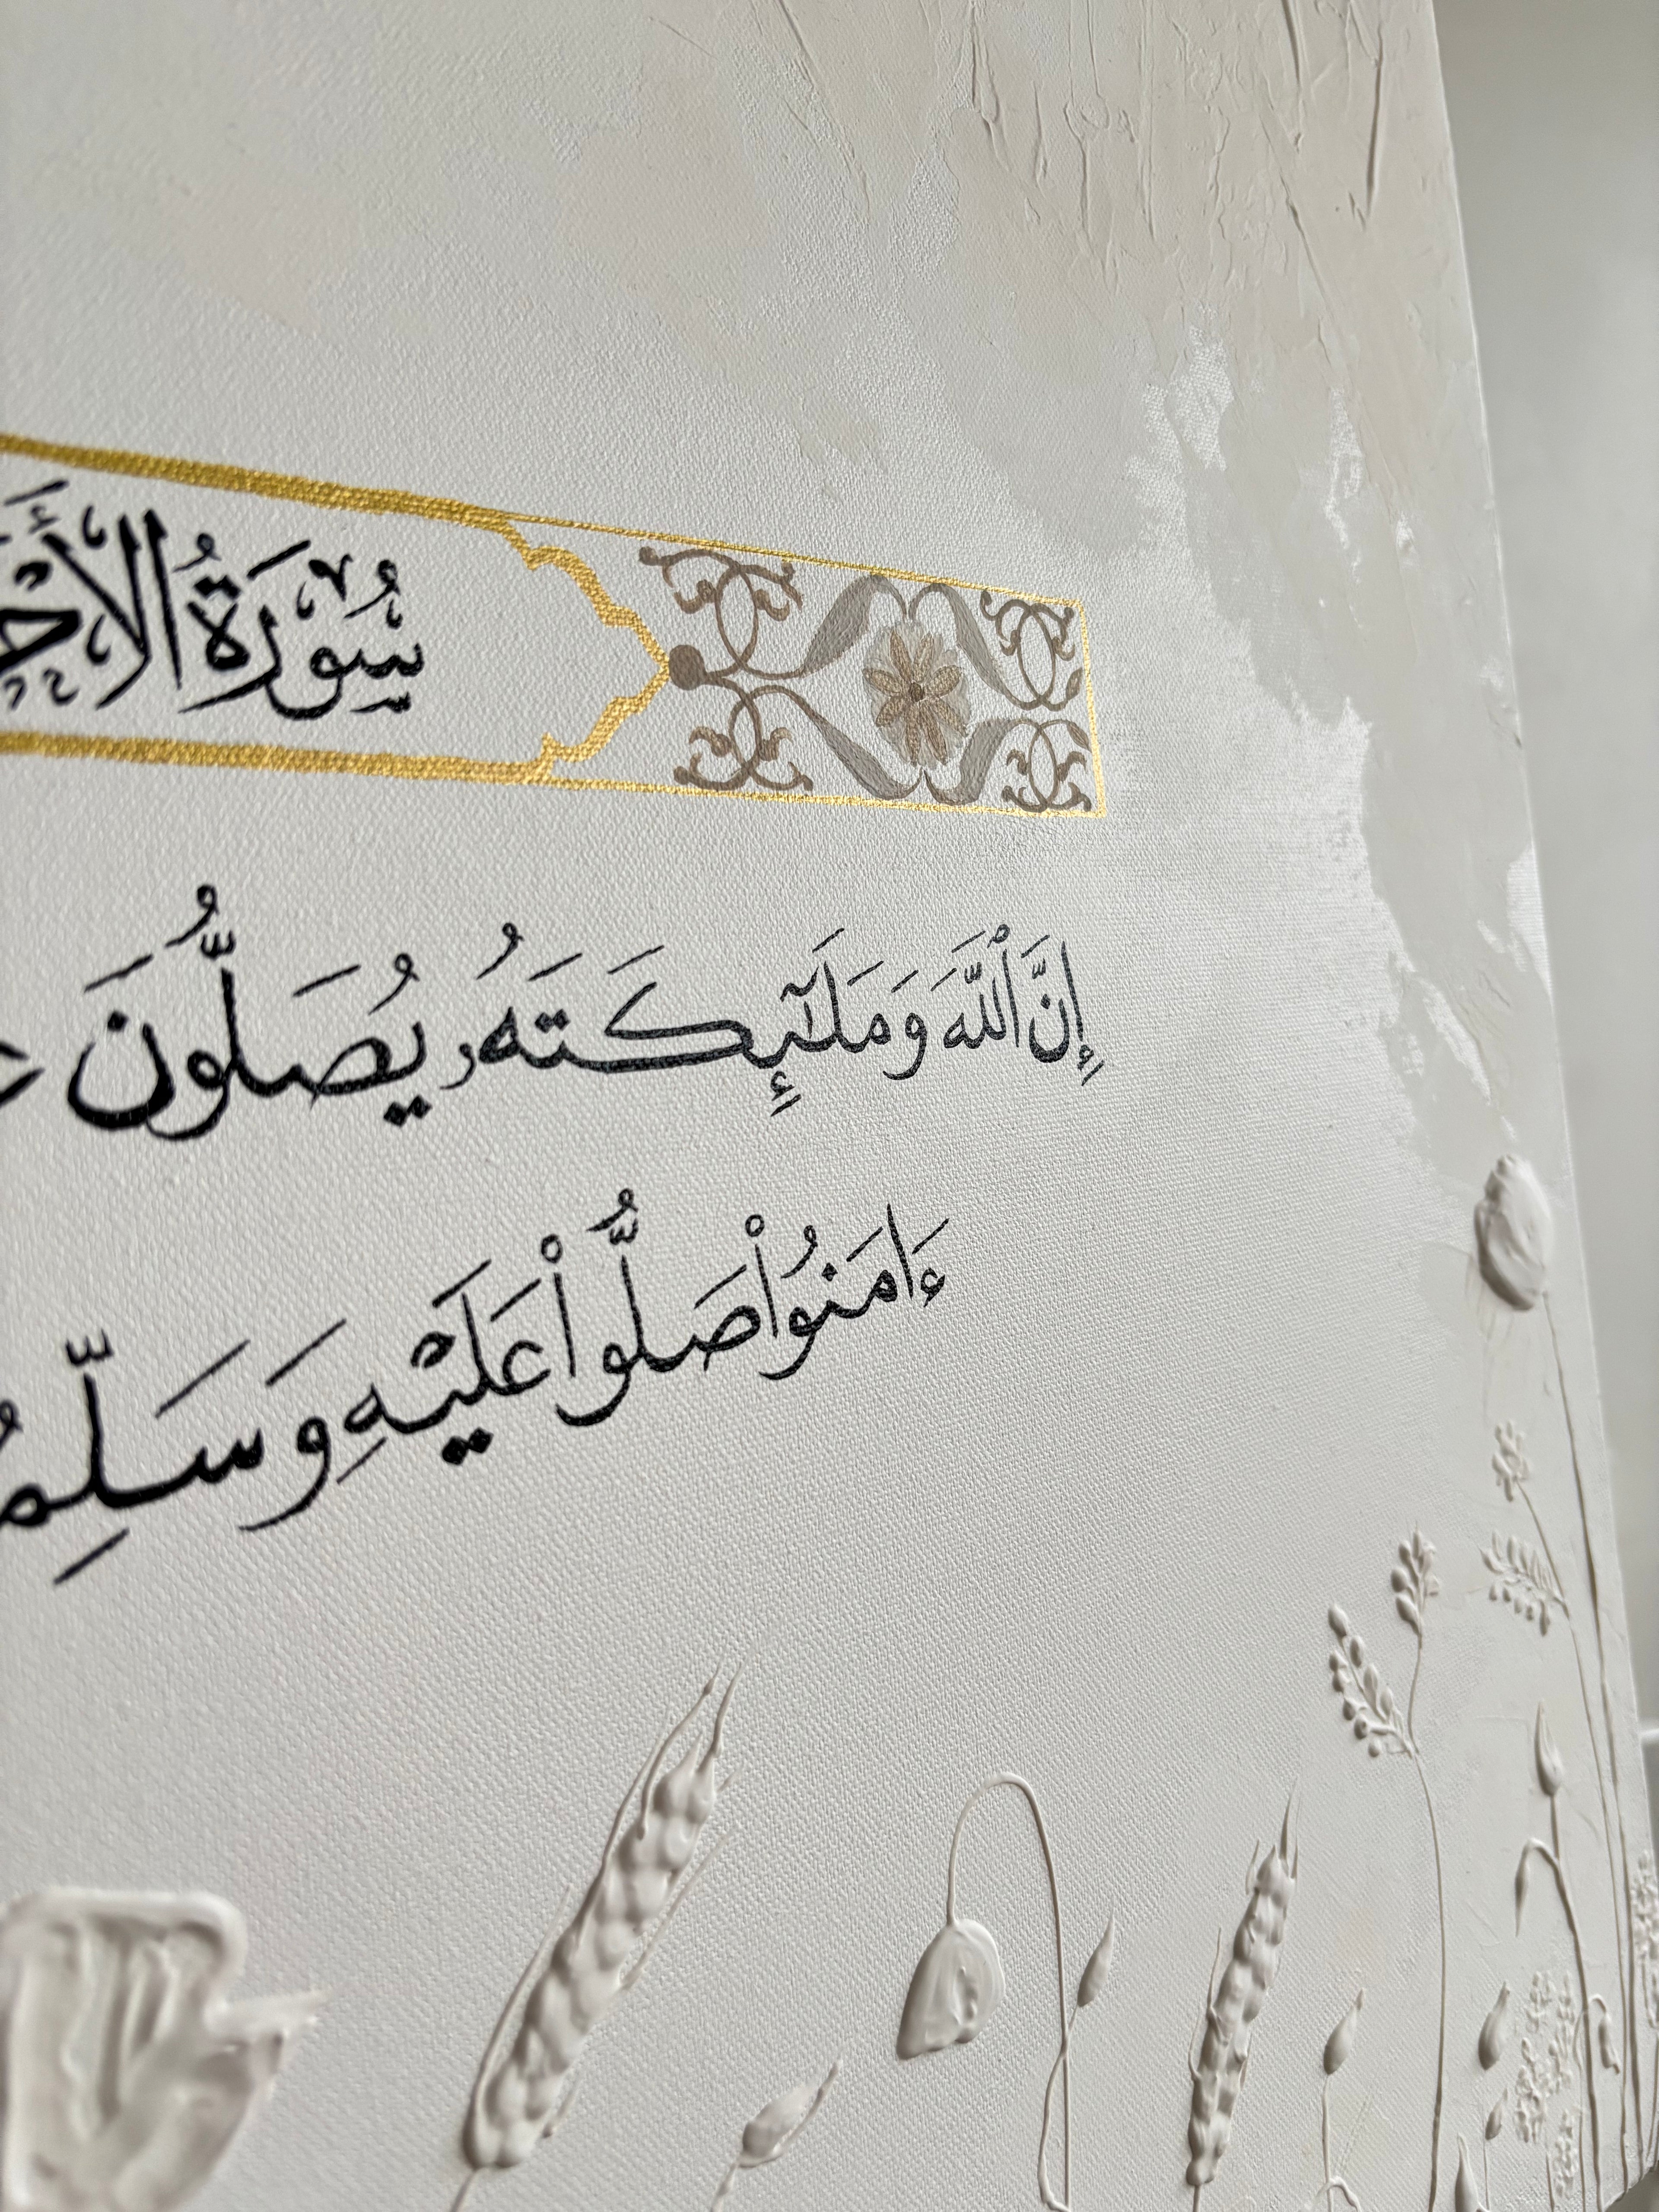 سُورَةُ الأَحْ
إِنَّ ٱللَّهَ وَمَلَـٰٓئِكَتَهُۥ يُصَلُّونَ
ءَامَنُوا۟ صَلُّوا۟ عَلَيْهِ وَسَلِّمُ